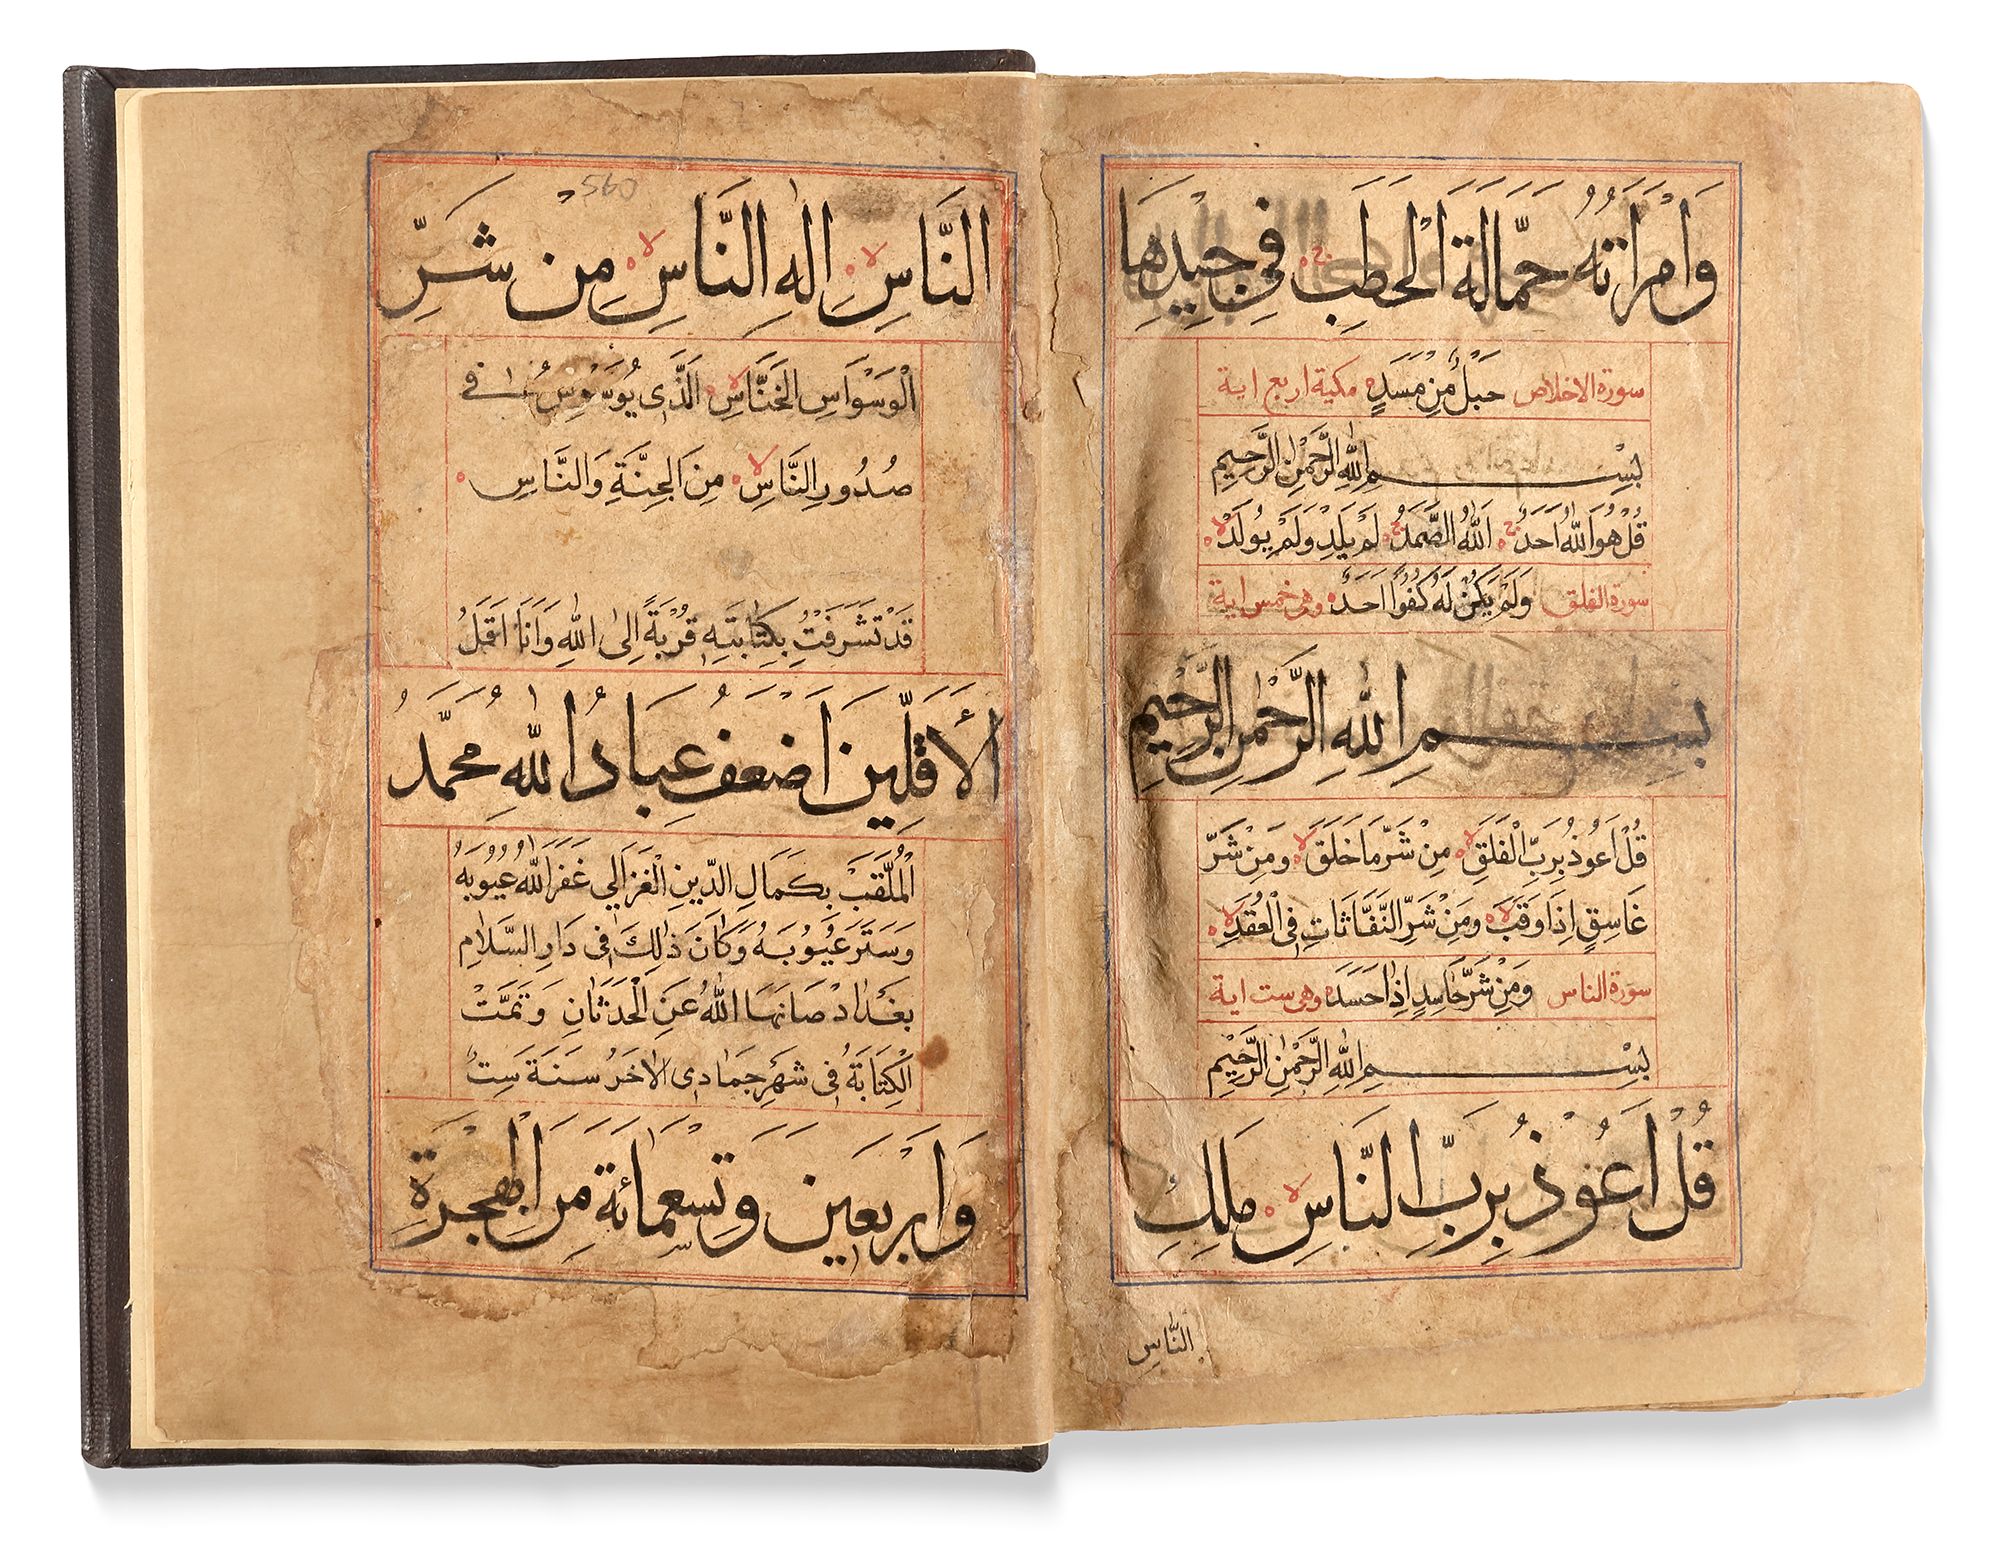 وَامْرَاَتُهُ حَمَّالَةَ الْحَطَبِ ج فِي جِيْدِهَا
سورة الاخلاص حَبْلٌ مِنْ مَسَدٍ مكية اربع اية
بِسْمِ اللهِ الرَّحْمٰنِ الرَّحِيْمِ
قُلْ هُوَ اللهُ اَحَدٌ ج اَللهُ الصَّمَدُ ج لَمْ يَلِدْ وَلَمْ يُوْلَدْ لا
سورة الفلق وَلَمْ يَكُنْ لَهُ كُفُوًا اَحَدٌ وهى خمس اية
بِسْمِ اللهِ الرَّحْمٰنِ الرَّحِيْمِ
قُلْ اَعُوْذُ بِرَبِّ الْفَلَقِ لا مِنْ شَرِّ مَا خَلَقَ لا وَمِنْ شَرِّ
غَاسِقٍ اِذَا وَقَبَ لا وَمِنْ شَرِّ النَّفَّاثَاتِ فِى الْعُقَدِ لا
سورة الناس وَمِنْ شَرِّ حَاسِدٍ اِذَا حَسَدَ وهى ست اية
بِسْمِ اللهِ الرَّحْمٰنِ الرَّحِيْمِ
قُلْ اَعُوْذُ بِرَبِّ النَّاسِ لا مَلِكِ
النَّاسِ
540
النَّاسِ لا اِلٰهِ النَّاسِ لا مِنْ شَرِّ
الْوَسْوَاسِ الْخَنَّاسِ لا الَّذِى يُوَسْوِسُ فى
صُدُورِ النَّاسِ لا مِنَ الْجِنَّةِ وَالنَّاسِ
قَدْ تَشَرَفْتُ بِكِتَابَتِهِ قُرْبَةً اِلىٰ اللهِ وَاَنَا اَقَلُ
الأَقَلِّينَ اَضْعَفُ عِبَادُ اللهِ مُحَمَّدُ
الْمُلَقَّبْ بِكَمَالِ الدِّينِ الْغَزَالِي غَفَرَ اللهُ عُيُوبَهُ
وَسَتَرَ عُيُوبَهُ وَكَانَ ذٰلِكَ فِى دَارِ السَّلاٰمِ
بغْدَاد صَانَهَا اللهُ عَنِ الْحَدَثَانِ وَتَمَّتْ
الْكِتَابَةُ فِى شَهْرِ جَمَادِى الاَخَرُ سَنَةَ سِتُ
وَاَرْبَعِينَ وَتِسْعِمَائَةَ مِنَ الْهِجْرَةِ